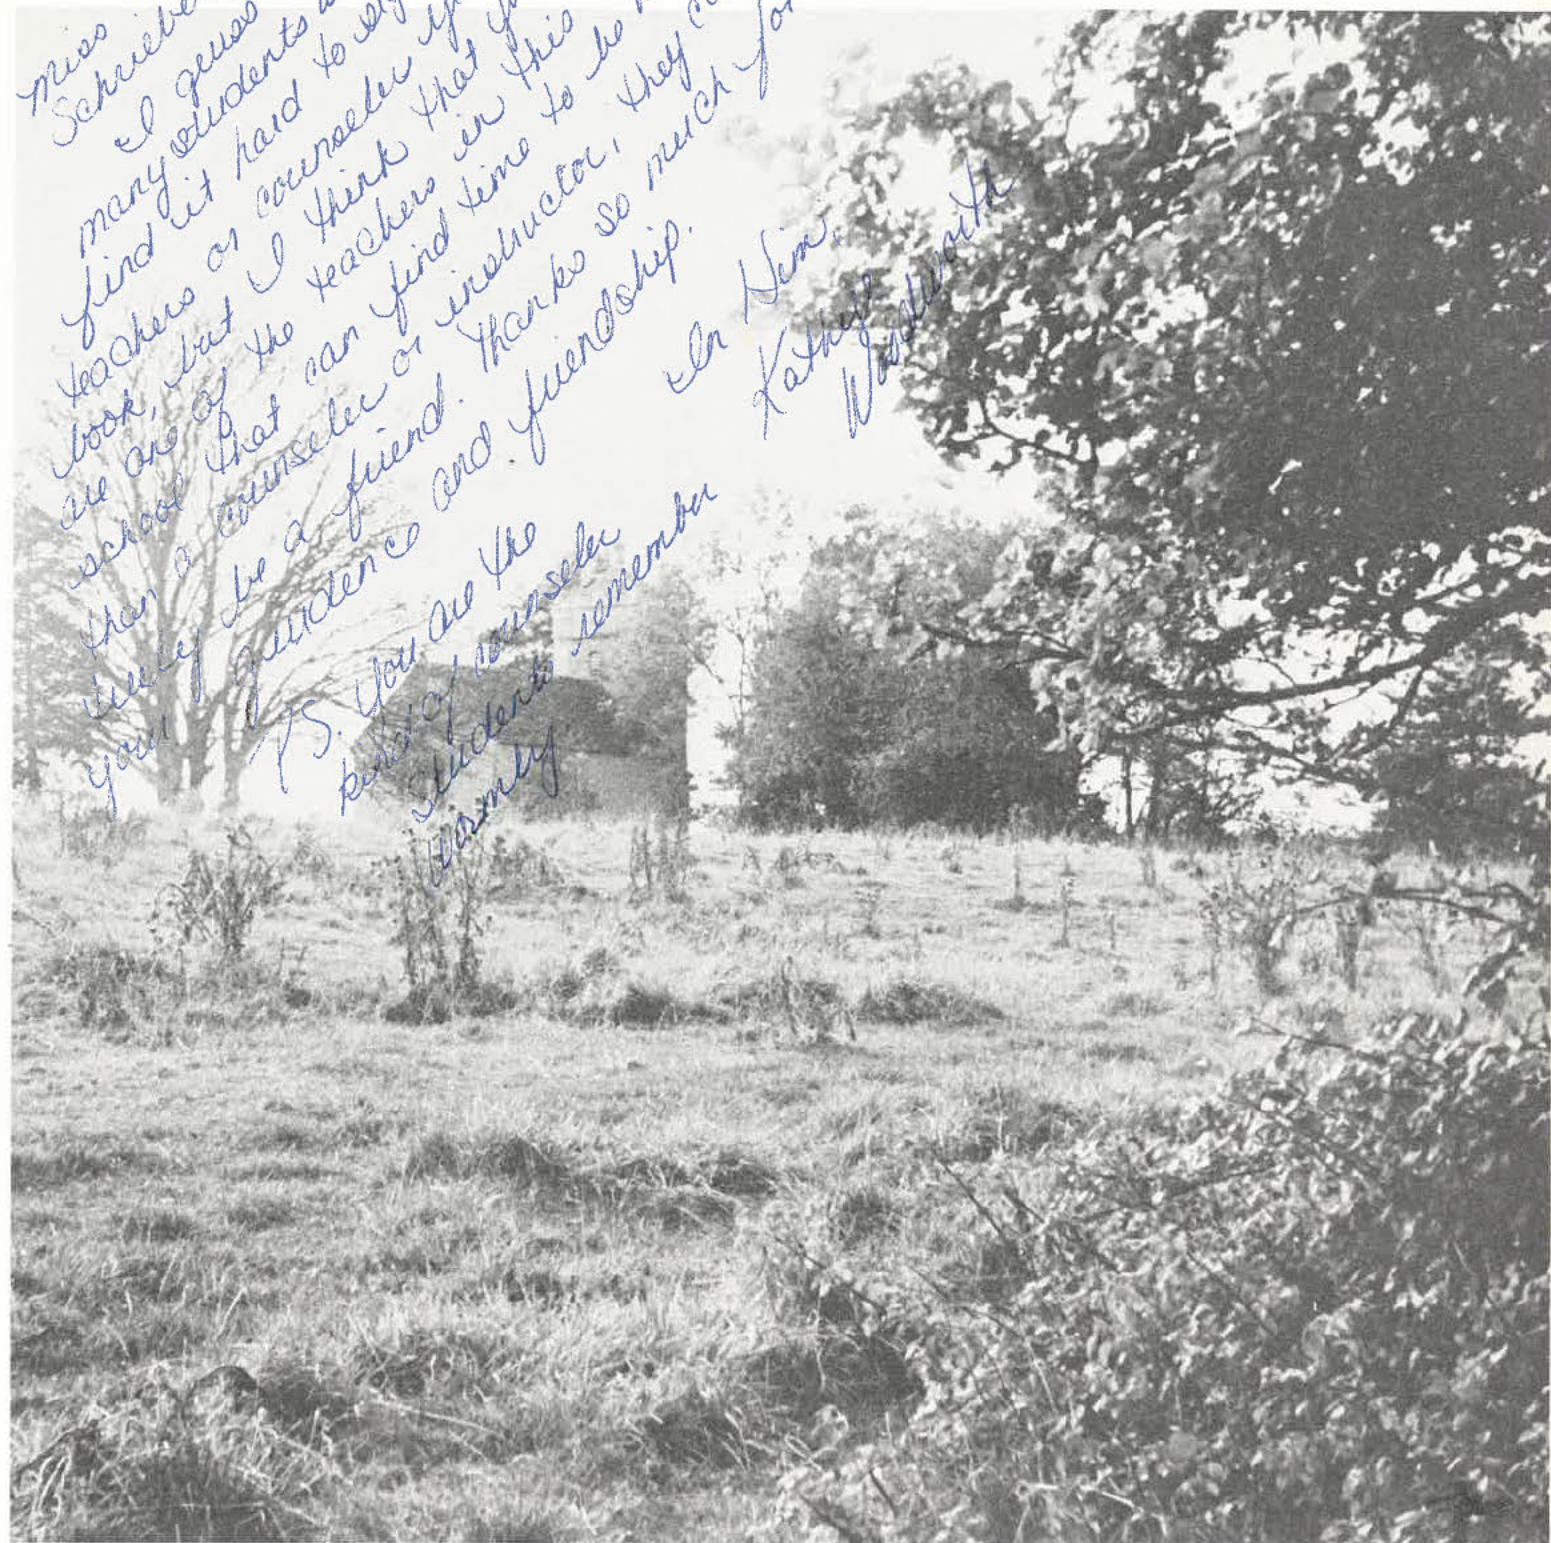 Miss
Schriebe
I guess
many students
find it hard to
teachers or counseler
book, but I think that
are one of the teachers in this
school that can find time to be
than a counseler or instructor, they
truly be a friend. Thanks so much for
your guidence and friendship.
In Him,
Kathy
Woodworth
P.S. You are the
kind of counseler
students remember
warmly.